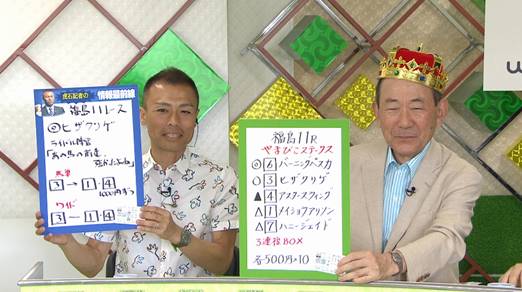 虎石記者の
情報最前線
福島11レース
◎ヒザクリゲ
ライバル陣営
「あの馬の前進
馬単
3→1・4
ワイド
3−1・4
福島11R
やまびこステークス
◎6バーニングペスカ
○3ヒザクリゲ
▲4アスタースウィング
△1メイショウアリソン
△7ハニージェイド
3連複BOX
各500円×10
W